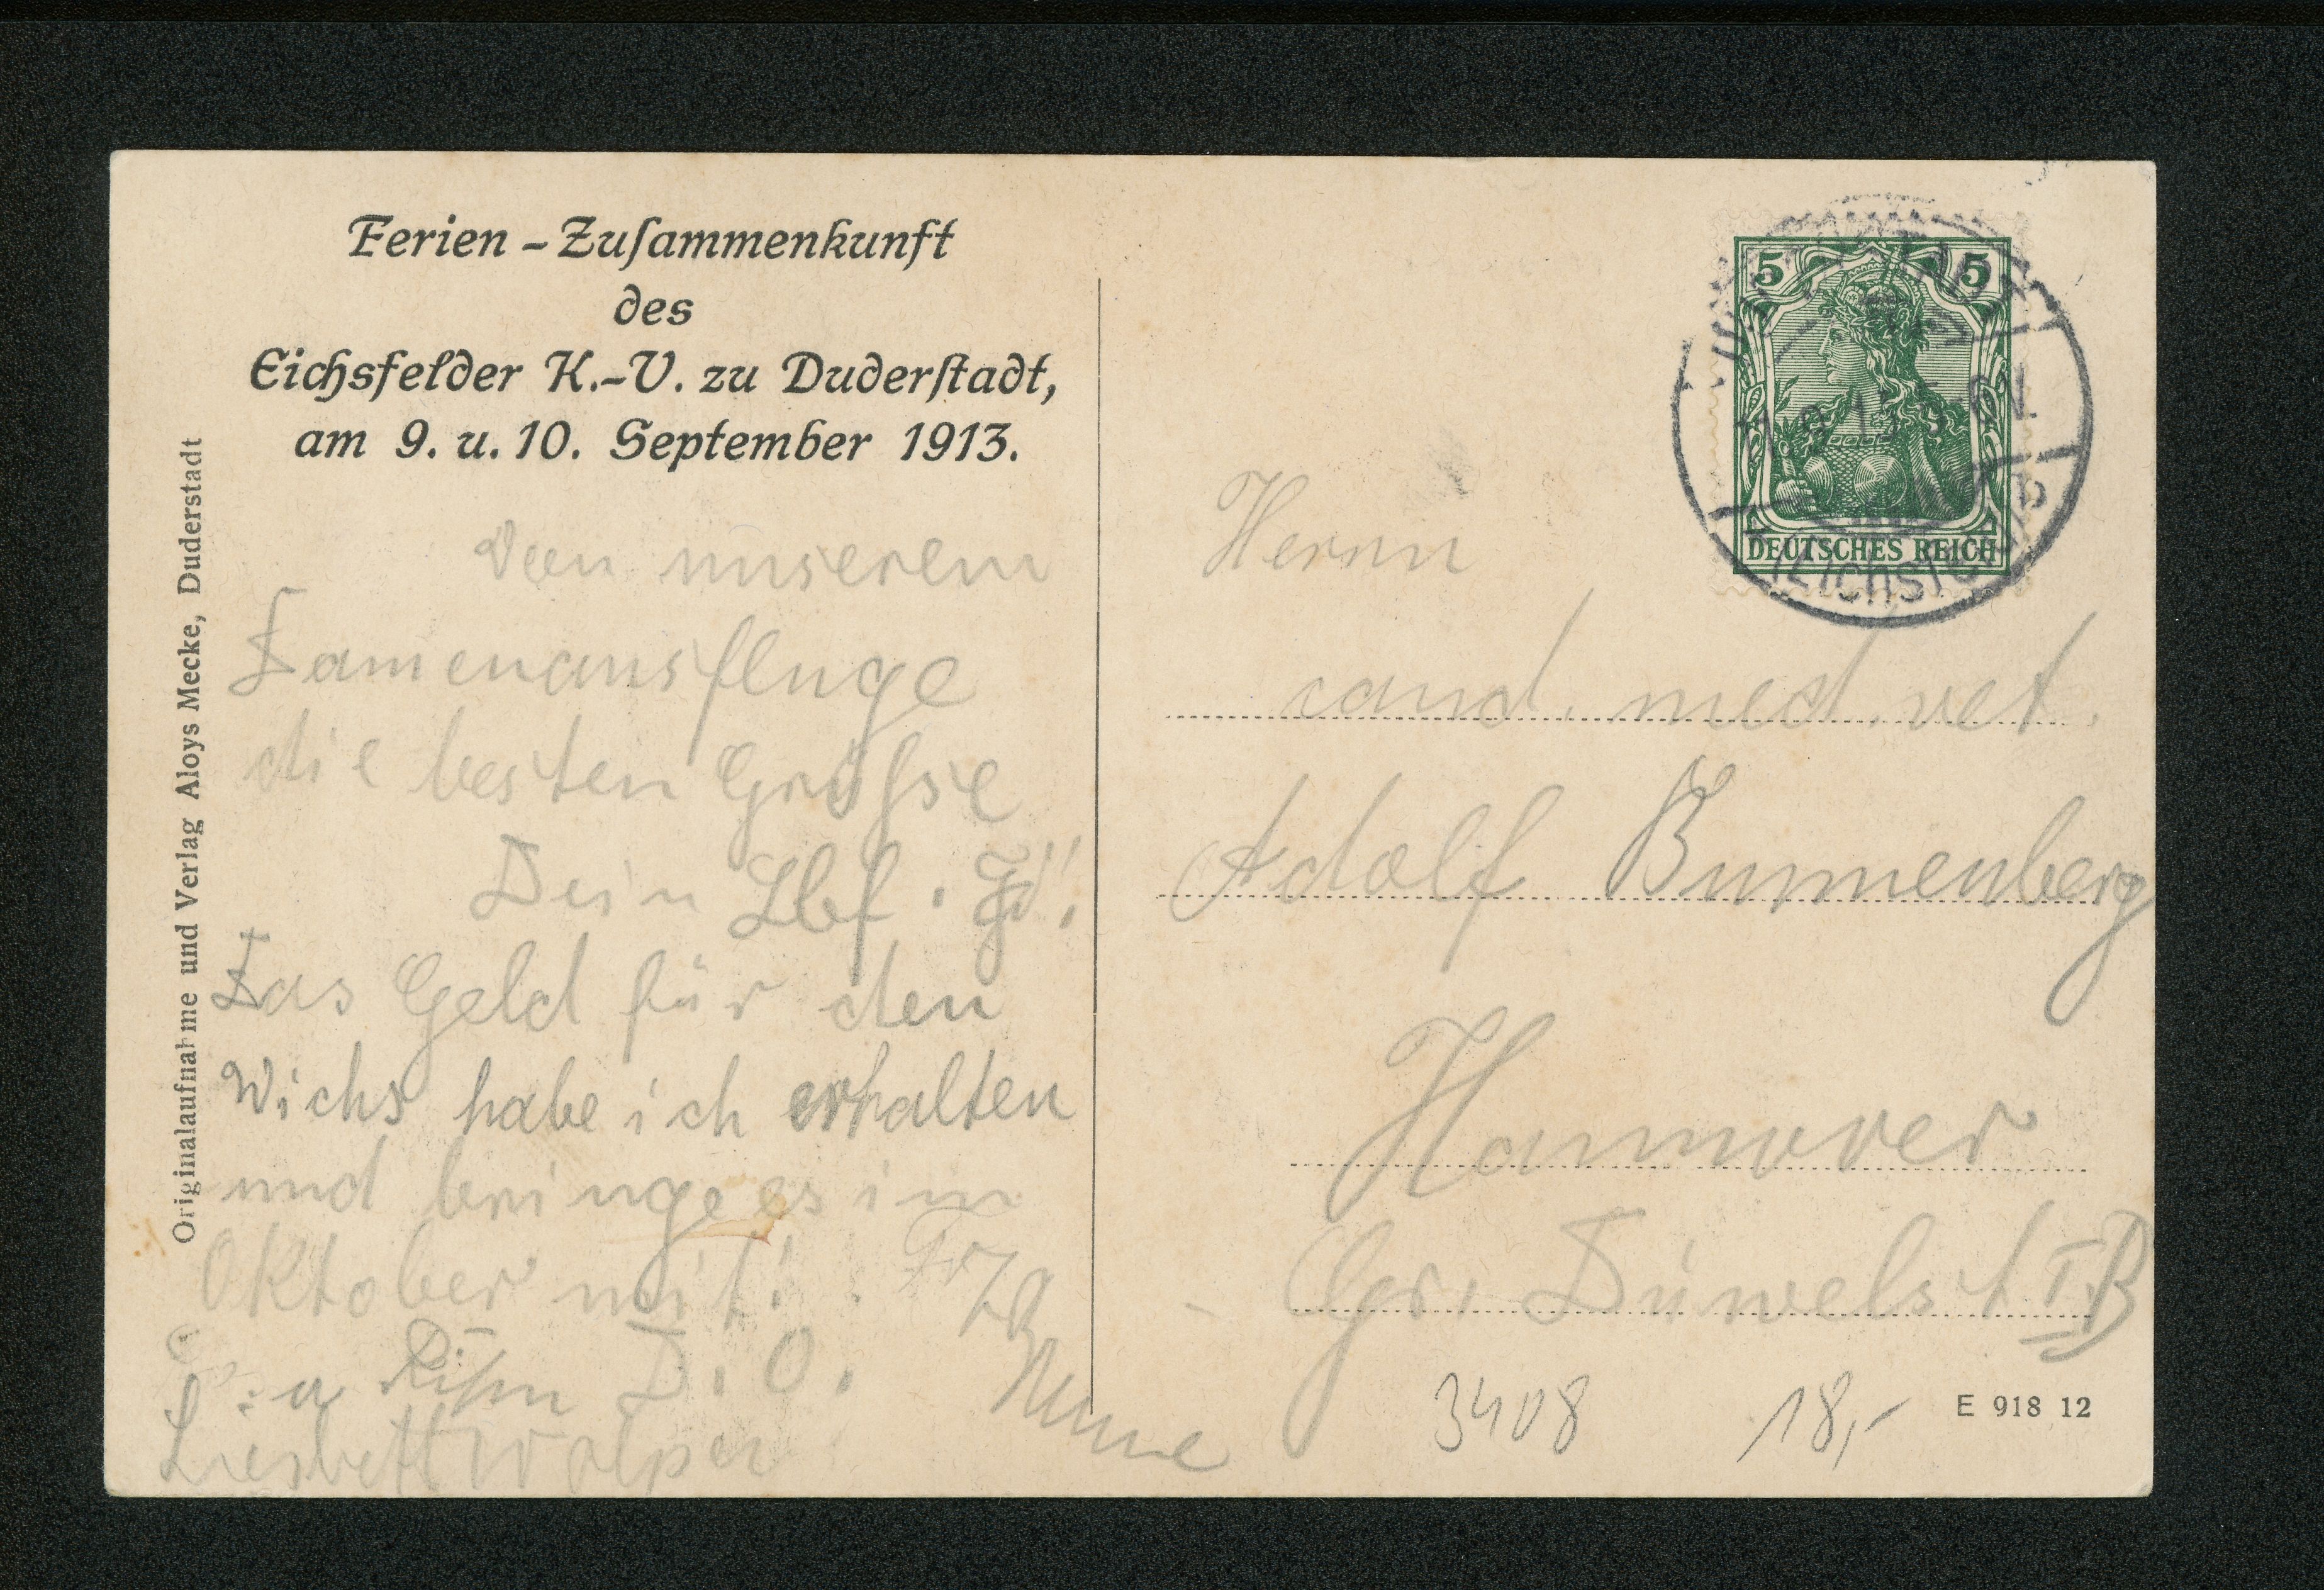 Ferien - Zuſammenkunft
des
Eichsfelder K.-V. zu Duderſtadt,
am 9. u. 10. September 1913.
Originalaufnahme und Verlag Aloys Mecke, Duderstadt
Von unserem
Damenausfluge
die besten Grüsse
Dein Lbf.
Das Geld für den
Wichs habe ich erhalten
und bringe es im
Oktober mit!
D. O.
Liesbeth Wolper
5 5
DEUTSCHES REICH
Herrn
cand. med. vet.
Adolf Bunnenberg
Hannover
Gr. Düwelst
3408 18,-
E 918 12